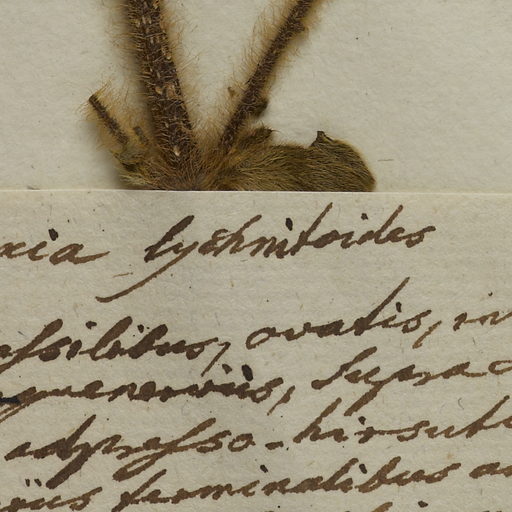 xia lychnitoides
essilibus, ovatis, in
quenerviis, supra
adpresso-hirsuti
iis terminalibus